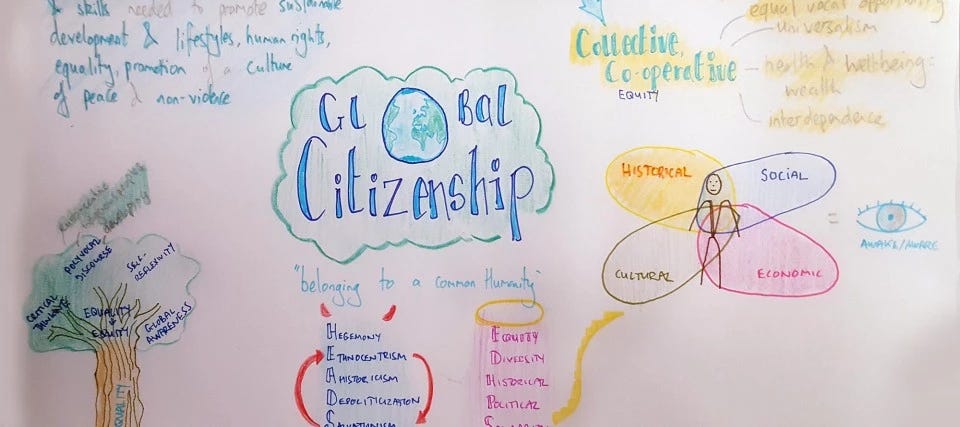 & skills needed to promote sustainable
development & lifestyles, human rights,
equality, promotion of a culture
of peace & non-violence
GLOBAL
Citizenship
"belonging to a common Humanity"
HEGEMONY
ETHNOCENTRISM
AHISTORICISM
DEPOLITICIZATION
SALVATIONISM
EQUITY
DIVERSITY
HISTORICAL
POLITICAL
Collective,
Co-operative
EQUITY
equal vocal opportunity
universalism
health & well-being =
wealth
interdependence
HISTORICAL
SOCIAL
CULTURAL
ECONOMIC
=
AWAKE/AWARE
developing
POLYVOCAL
DISCOURSE
SELF-
REFLEXIVITY
CRITICAL
THINKING
EQUALITY
EQUITY
GLOBAL
AWARENESS
EQUALITY